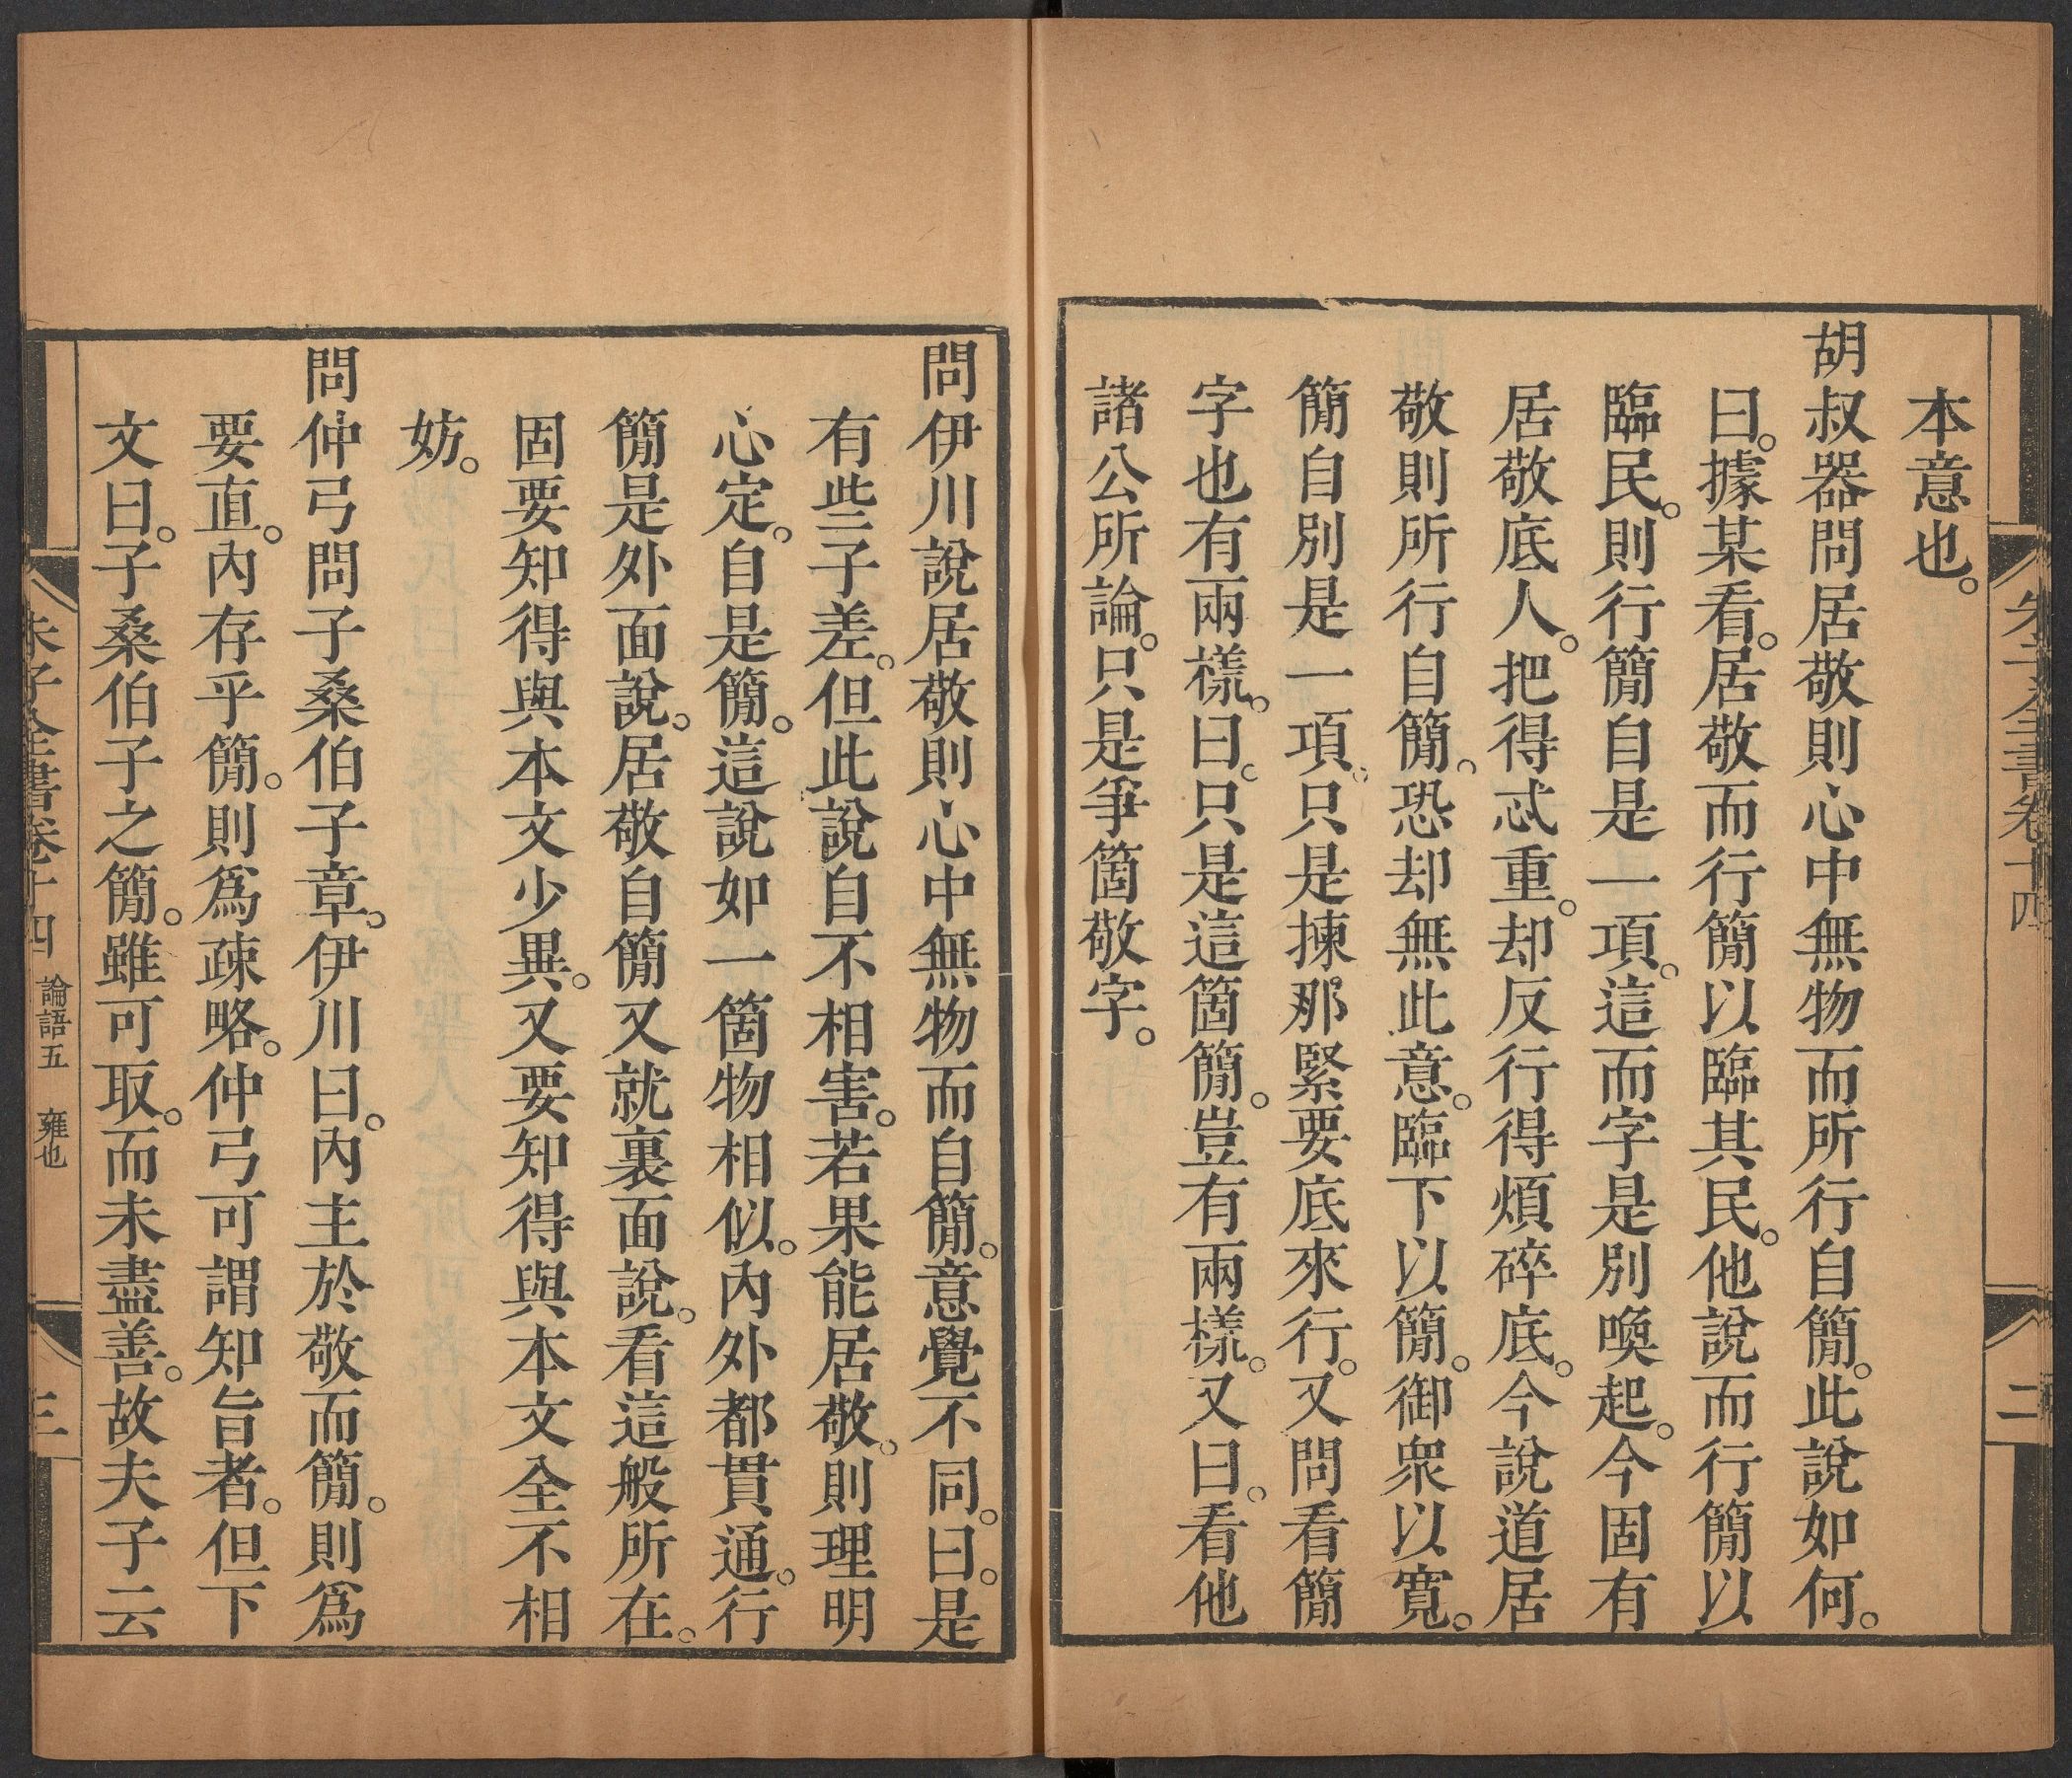 朱子全書卷十四
二
本意也。
胡叔器問居敬則心中無物而所行自簡。此說如何。
曰。據某看。居敬而行簡以臨其民。他說而行簡以
臨民。則行簡自是一項。這而字是別喚起。今固有
居敬底人。把得忒重。却反行得煩碎底。今說道居
敬則所行自簡。恐却無此意。臨下以簡。御衆以寬。
簡自別是一項。只是揀那緊要底來行。又問看簡
字也有兩樣。曰。只是這箇簡。豈有兩樣。又曰。看他
諸公所論。只是爭箇敬字。
問伊川說居敬則心中無物而自簡。意覺不同。曰。是
有些子差。但此說自不相害。若果能居敬。則理明
心定。自是簡。這說如一箇物相似。內外都貫通。行
簡是外面說。居敬自簡又就裏面說。看這般所在。
固要知得與本文少異。又要知得與本文全不相
妨。
問仲弓問子桑伯子章。伊川曰。內主於敬而簡。則爲
要直。內存乎簡。則爲疎略。仲弓可謂知旨者。但下
文曰。子桑伯子之簡。雖可取。而未盡善。故夫子云
朱子全書卷十四 論語五 雍也
三